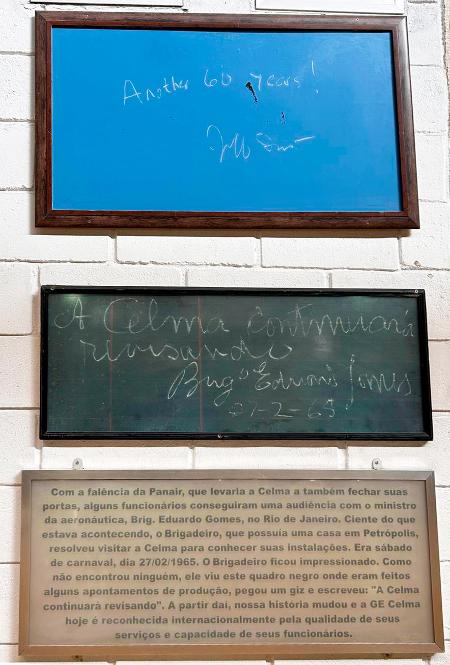 Another 60 years!
A Celma continuará
revisando
Brigº Eduardo Gomes
27-2-65
Com a falência da Panair, que levaria a Celma a também fechar suas
portas, alguns funcionários conseguiram uma audiência com o ministro
da aeronáutica, Brig. Eduardo Gomes, no Rio de Janeiro. Ciente do que
estava acontecendo, o Brigadeiro, que possuía uma casa em Petrópolis,
resolveu visitar a Celma para conhecer suas instalações. Era sábado
de carnaval, dia 27/02/1965. O Brigadeiro ficou impressionado. Como
não encontrou ninguém, ele viu este quadro negro onde eram feitos
alguns apontamentos de produção, pegou um giz e escreveu: "A Celma
continuará revisando". A partir daí, nossa história mudou e a GE Celma
hoje é reconhecida internacionalmente pela qualidade de seus
serviços e capacidade de seus funcionários.